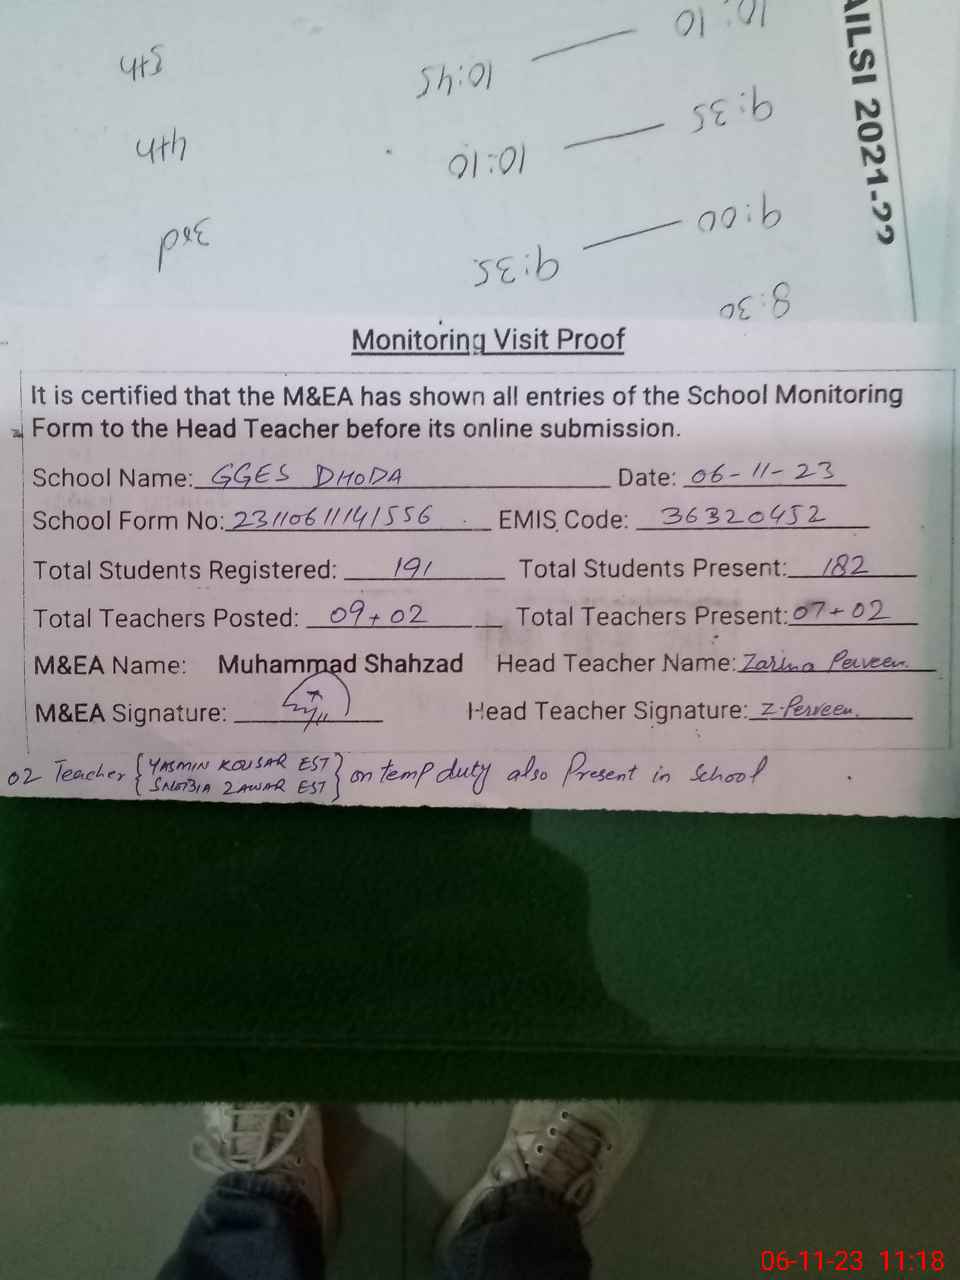 10:10
AILSI 2021-22
5th 10:45
9:35
4th 10:10
9:00
3rd 9:35
8:30
Monitoring Visit Proof
It is certified that the M&EA has shown all entries of the School Monitoring
Form to the Head Teacher before its online submission.
School Name: GGES DHODA Date: 06-11-23
School Form No: 23110611141556 EMIS Code: 36320452
Total Students Registered: 191 Total Students Present: 182
Total Teachers Posted: 09+02 Total Teachers Present: 07+02
M&EA Name: Muhammad Shahzad Head Teacher Name: Zarina Perveen.
M&EA Signature: Head Teacher Signature: Z-Perveen.
02 Teacher { YASMIN KOUSAR EST } on temp duty also Present in School
ZAWAR EST
06-11-23 11:18